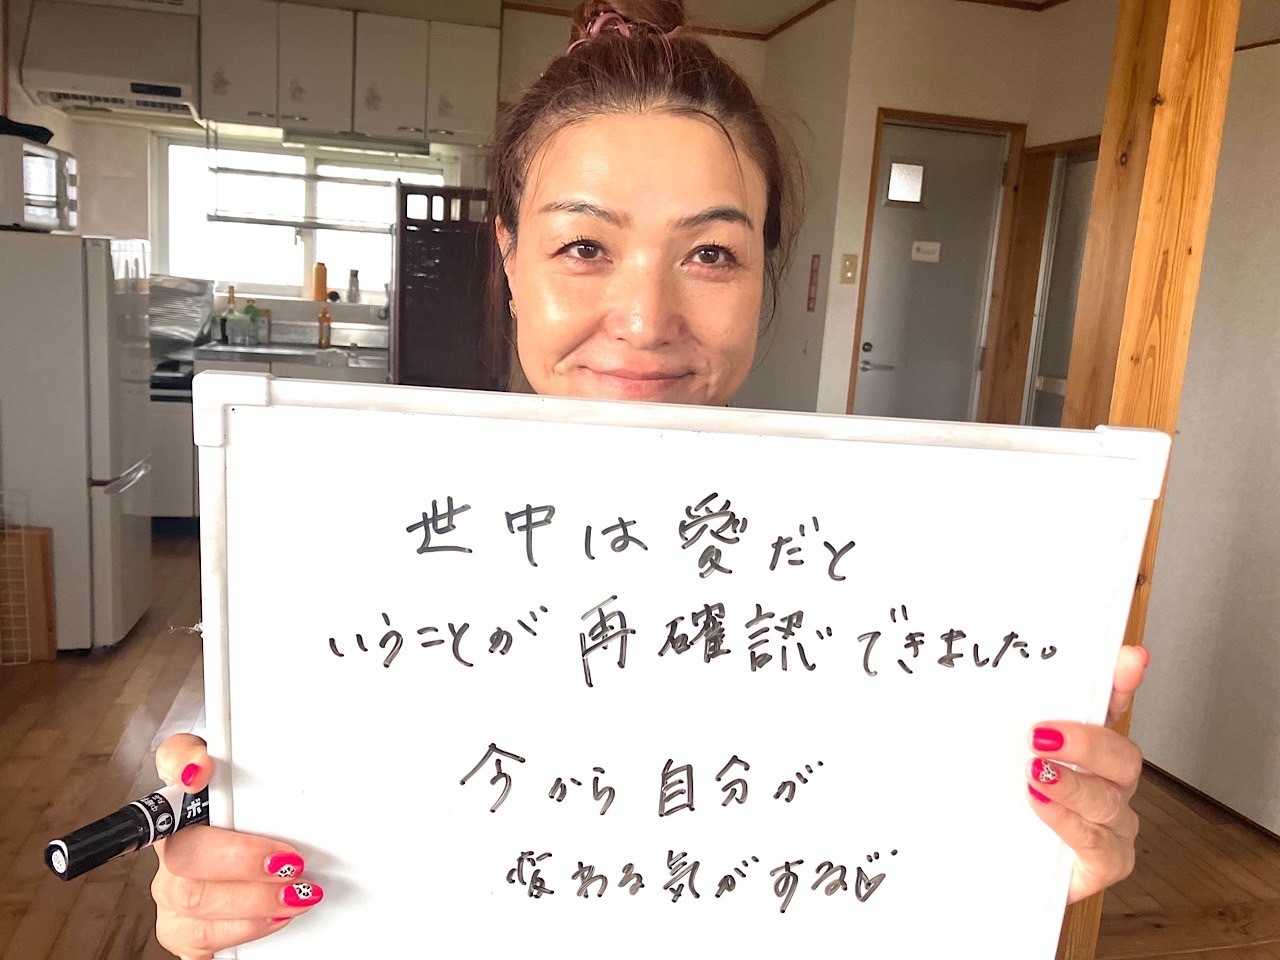 世中は愛だと
いうことが再確認できました。
今から自分が
変わる気がする♡
ボー